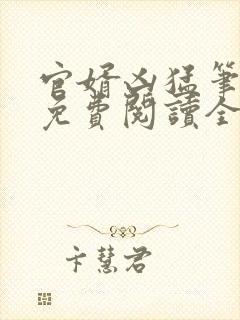 官婿凶猛筆
免費閱讀全
卞慧君